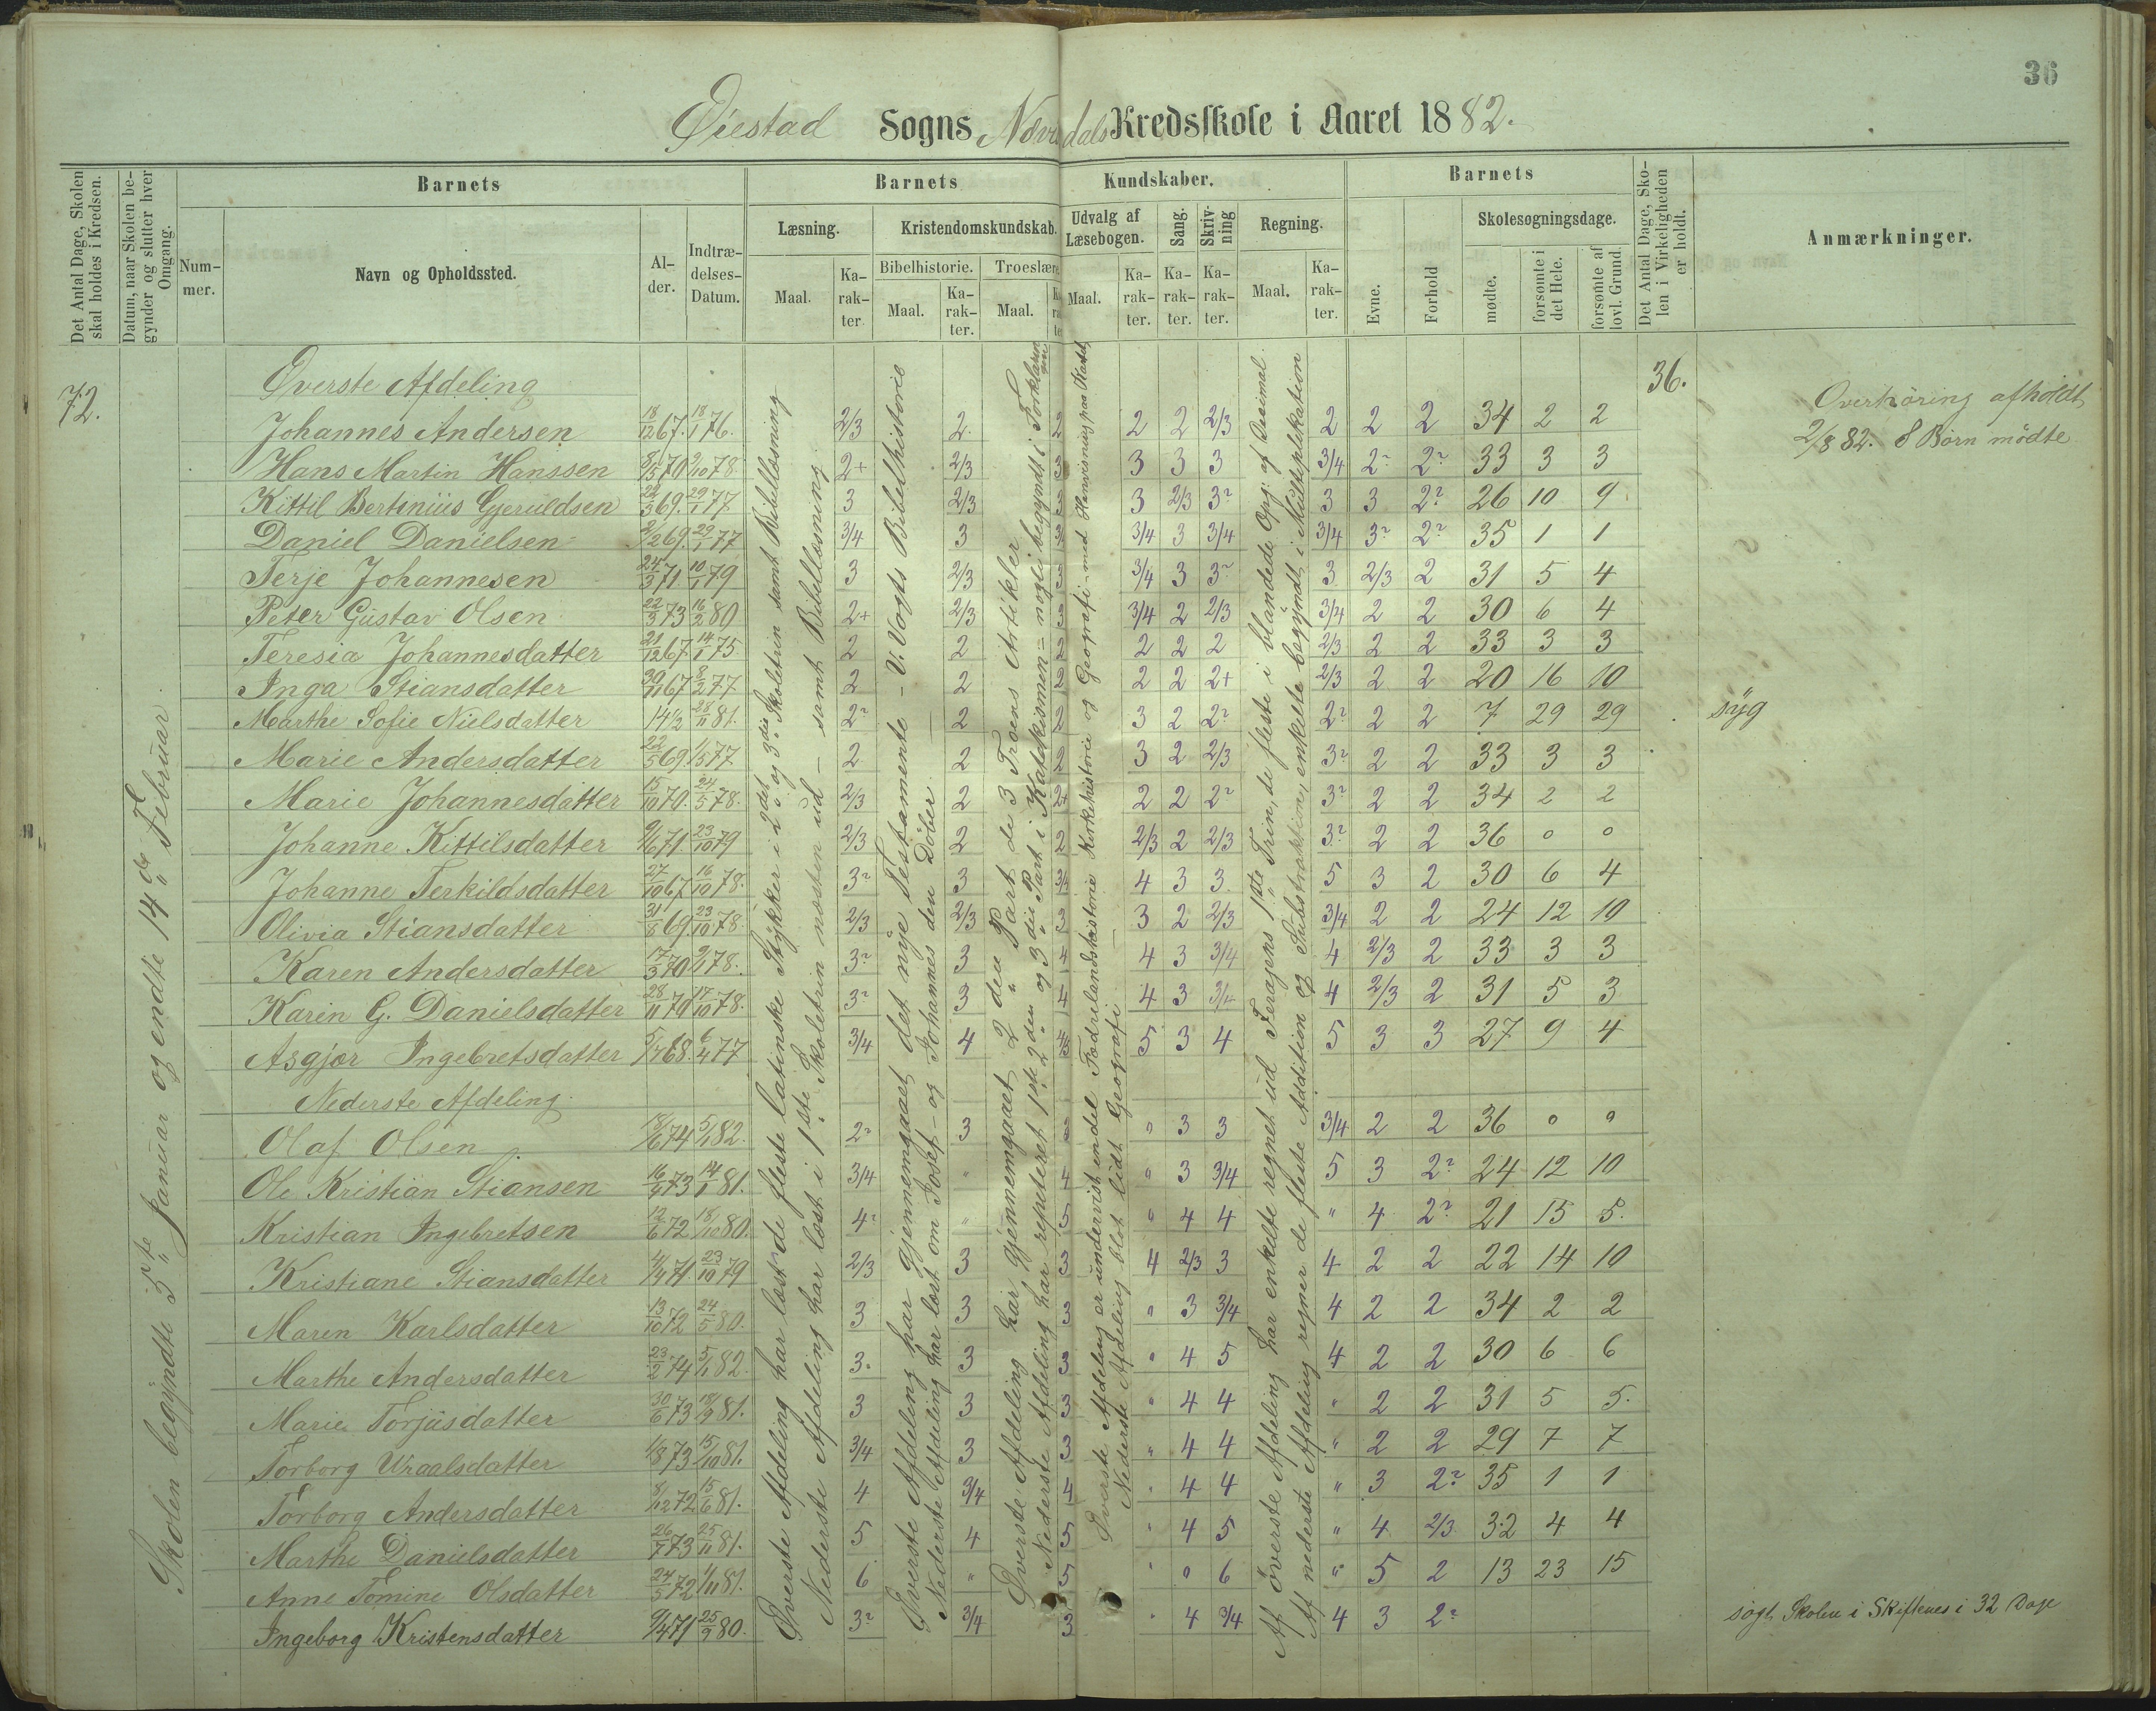 36
Øiestad Sogns Nævesdals Kredsskole i Aaret 1882.
Det Antal Dage, Skolen skal holdes i Kredsen.
Datum, naar Skolen begynder og slutter hver Omgang.
Barnets
Nummer.
Navn og Opholdssted.
Alder.
Indtrædelses-Datum.
Barnets Kundskaber.
Læsning.
Maal.
Karakter.
Kristendomskundskab.
Bibelhistorie.
Maal.
Karakter.
Troeslære
Maal.
Udvalg af Læsebogen.
Maal.
Karakter.
Sang.
Karakter.
Skrivning
Karakter.
Regning.
Maal.
Karakter.
Barnets
Evne.
Forhold
Skolesøgningsdage.
mødte.
forsømte i det Hele.
forsømte af lovl. Grund.
Det Antal Dage, Skolen i Virkeligheden er holdt.
Anmærkninger.
72.
Skolen begyndte 5te Januar og endte 14de Februar.
36.
Overhøring afholdt
2/8 82. 8 Børn mødte
Øverste Afdeling har læst de fleste latinske Stykker i 2det og 3die Skoletrin samt Bibellæsning
Nederste Afdeling har læst i 1ste Skoletrin næsten ud – samt Bibellæsning.
Øverste Afdeling har gjennemgaaet det nye Testamente – V. Vogts Bibelhistorie
Nederste Afdeling har læst om Josef – og Johannes den Døber
Øverste Afdeling har gjennemgaaet 2den Part de 3 Troens Artikler
Nederste Afdeling har repeteret 1ste 2den og 3die Part i Katekismen = nogle begyndt i Forklaringen
Øverste Afdeling er undervist en del Fædrelandshistorie Kirkehistorie og Geografi – med Henvisning paa Kartet
Nederste Afdeling blot lidt Geografi
Af øverste Afdeling har enkelte regnet ud Feragens 1ste Trin, de fleste i blandede Opg: af Desimal.
Af nederste Afdeling regner de fleste Addition og Substraktion, enkelte begyndt i Multiplekation
Øverste Afdeling
Johannes Andersen 18/12 67. 18/1 76. 2/3 2. 2 2 2 2/3 2 2 2 34 2 2
Hans Martin Hanssen 8/5 70 9/10 78. 2+ 2/3 3 3 3 3 3/4 2? 2? 33 3 3
Kittil Bertinius Gjeruldsen 22/3 69. 29/1 77 3 2/3 3 3 2/3 3? 3 3 2? 26 10 9
Daniel Danielsen 2/2 69. 29/1 77 3/4 3 3/4 3/4 3 3/4 3/4 3? 2? 35 1 1
Terje Johannesen 24/3 71 10/1 79 3 2/3 3 3/4 3 3? 3 2/3 2 31 5 4
Peter Gustav Olsen 22/3 73 16/2 80 2+ 2/3 3 3/4 2 2/3 3/4 2 2 30 6 4
Teresia Johannesdatter 21/12 67. 14/1 75 2 2 2 2 2 2 2/3 2 2 33 3 3
Inga Stiansdatter 30/11 67 8/2 77 2 2 2 2 2 2+ 2/3 2 2 20 16 10
Marthe Sofie Nielsdatter 14 1/2 28/11 81. 2? 2 2 3 2 2? 2? 2 2 7 29 29 syg
Marie Andersdatter 22/5 69 1/5 77 2 2 2 3 2 2/3 3? 2 2 33 3 3
Marie Johannesdatter 15/10 70. 24/5 78. 2/3 2 2+ 2 2 2? 3? 2 2 34 2 2
Johanne Kittilsdatter 9/6 71 23/10 79 2/3 2 2 2/3 2 2/3 3? 2 2 36 0 0
Johanne Terkildsdatter 27/10 67 16/10 78. 3? 3 3/4 4 3 3 5 3 2 30 6 4
Olivia Stiansdatter 31/5 69. 23/10 78. 2/3 2/3 3 3 2 2/3 3/4 2 2 24 12 10
Karen Andersdatter 17/3 70 9/1 78. 3? 3 4 4 3 3/4 4 2/3 2 33 3 3
Karen G. Danielsdatter 28/11 70 17/10 78. 3? 3 4 4 3 3/4 4 2/3 2 31 5 3
Asgjær Ingebretsdatter 5/7 68. 6/4 77 3/4 4 4/5 5 3 4 5 3 3 27 9 4
Nederste Afdeling.
Olaf Olsen 18/6 74 5/1 82. 2? 3 3 " 3 3 3/4 2 2 36 0 0
Ole Kristian Stiansen 16/9 73 14/1 81. 3/4 " 4 " 3 3/4 5 3 2? 24 12 10
Kristian Ingebretsen 12/6 72 18/10 80. 4? " 5 " 4 4 " 4 2? 21 15 5.
Kristiane Stiansdatter 4/4 71. 23/10 79 2/3 3 3 4 2/3 3 4 2 2 22 14 10
Maren Karlsdatter 13/10 72 24/5 80. 3 3 3 " 3 3/4 4 2 2 34 2 2
Marthe Andersdatter 23/2 74 5/1 82. 3. 3 3 " 4 5 4 2 2 30 6 6
Marie Torjusdatter 30/6 73 19/9 81. 3 3 3 " 4 4 " 2 2 31 5 5.
Torborg Uraalsdatter 1/8 73 15/10 81. 3/4 3 3 " 4 4 " 2 2 29 7 7
Torborg Andersdatter 8/12 72 15/6 81. 4 3/4 4 " 4 4 " 3 2? 35 1 1
Marthe Danielsdatter 26/7 73 25/11 81. 5 4 5 " 4 5 " 4 2/3 32 4 4
Anne Tomine Olsdatter 24/5 72 1/11 81. 6 " 5 " 0 6 " 5 2 13 23 15
Ingeborg Kristensdatter 9/4 71 25/9 80. 3? 3/4 3 " 4 3/4 4 3 2? søgt Skolen i Skiftenes i 32 Dage